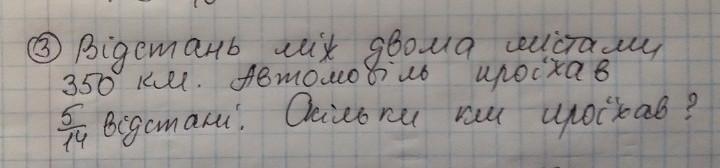 ③ Відстань між двома містами
350 км. Автомобіль проїхав
5/14 відстані. Скільки км проїхав?